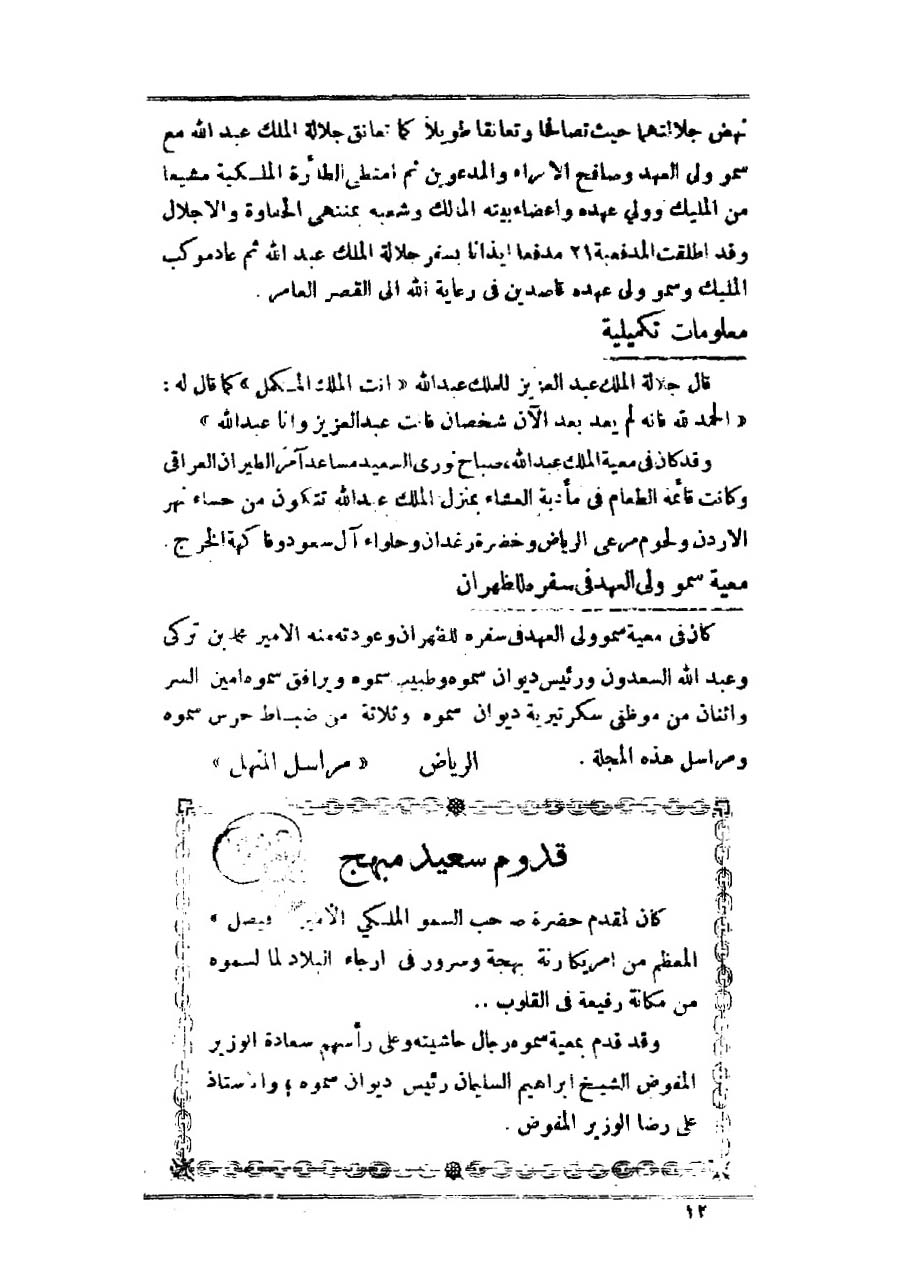 نهض جلالتهما حيث تصافحا وتعانقا طويلاً كما تعانق جلالة الملك عبد الله مع
سمو ولى العهد وصافح الامراء والمدعوين ثم امتطى الطائرة الملكية مشيعا
من المليك وولي عهده واعضاء بيته المالك وشعبه بمنتهى الحفاوة والاجلال
وقد اطلقت المدفعية ٢١ مدفعا ايذانا بسفر جلالة الملك عبد الله ثم عاد موكب
المليك وسمو ولى عهده قاصدين فى رعاية الله الى القصر العامر .
معلومات تكميلية
قال جلالة الملك عبد العزيز للملك عبدالله « انت الملك المكمل » كما قال له :
« الحمد لله فانه لم يعد بعد الآن شخصان فانت عبدالعزيز وانا عبدالله »
وقد كان فى معية الملك عبدالله، صباح نورى السعيد مساعد آمر الطيران العراقى
وكانت قائمة الطعام فى مأدبة العشاء بمنزل الملك عبدالله تتكون من حساء نهر
الاردن ولحوم مرعى الرياض وخضرة رغدان وحلواء آل سعود وفاكهة الخرج .
معية سمو ولى العهد فى سفره للظهران
كان فى معية سمو ولى العهد فى سفره للظهران وعودته منه الامير محمد بن تركى
وعبد الله السعدون ورئيس ديوان سموه وطبيب سموه ويرافق سموه امين السر
واثنان من موظفى سكرتيرية ديوان سموه وثلاثة من ضباط حرس سموه
ومراسل هذه المجلة . الرياض « مراسل المنهل »
قدوم سعيد مبهج
كان لمقدم حضرة صاحب السمو الملكي الأمير فيصل »
المعظم من امريكا رنة بهجة وسرور فى ارجاء البلاد لما لسموه
من مكانة رفيعة فى القلوب ..
وقد قدم بمعية سموه رجال حاشيته وعلى رأسهم سعادة الوزير
المفوض الشيخ ابراهيم السليمان رئيس ديوان سموه ؛ والاستاذ
على رضا الوزير المفوض .
١٢